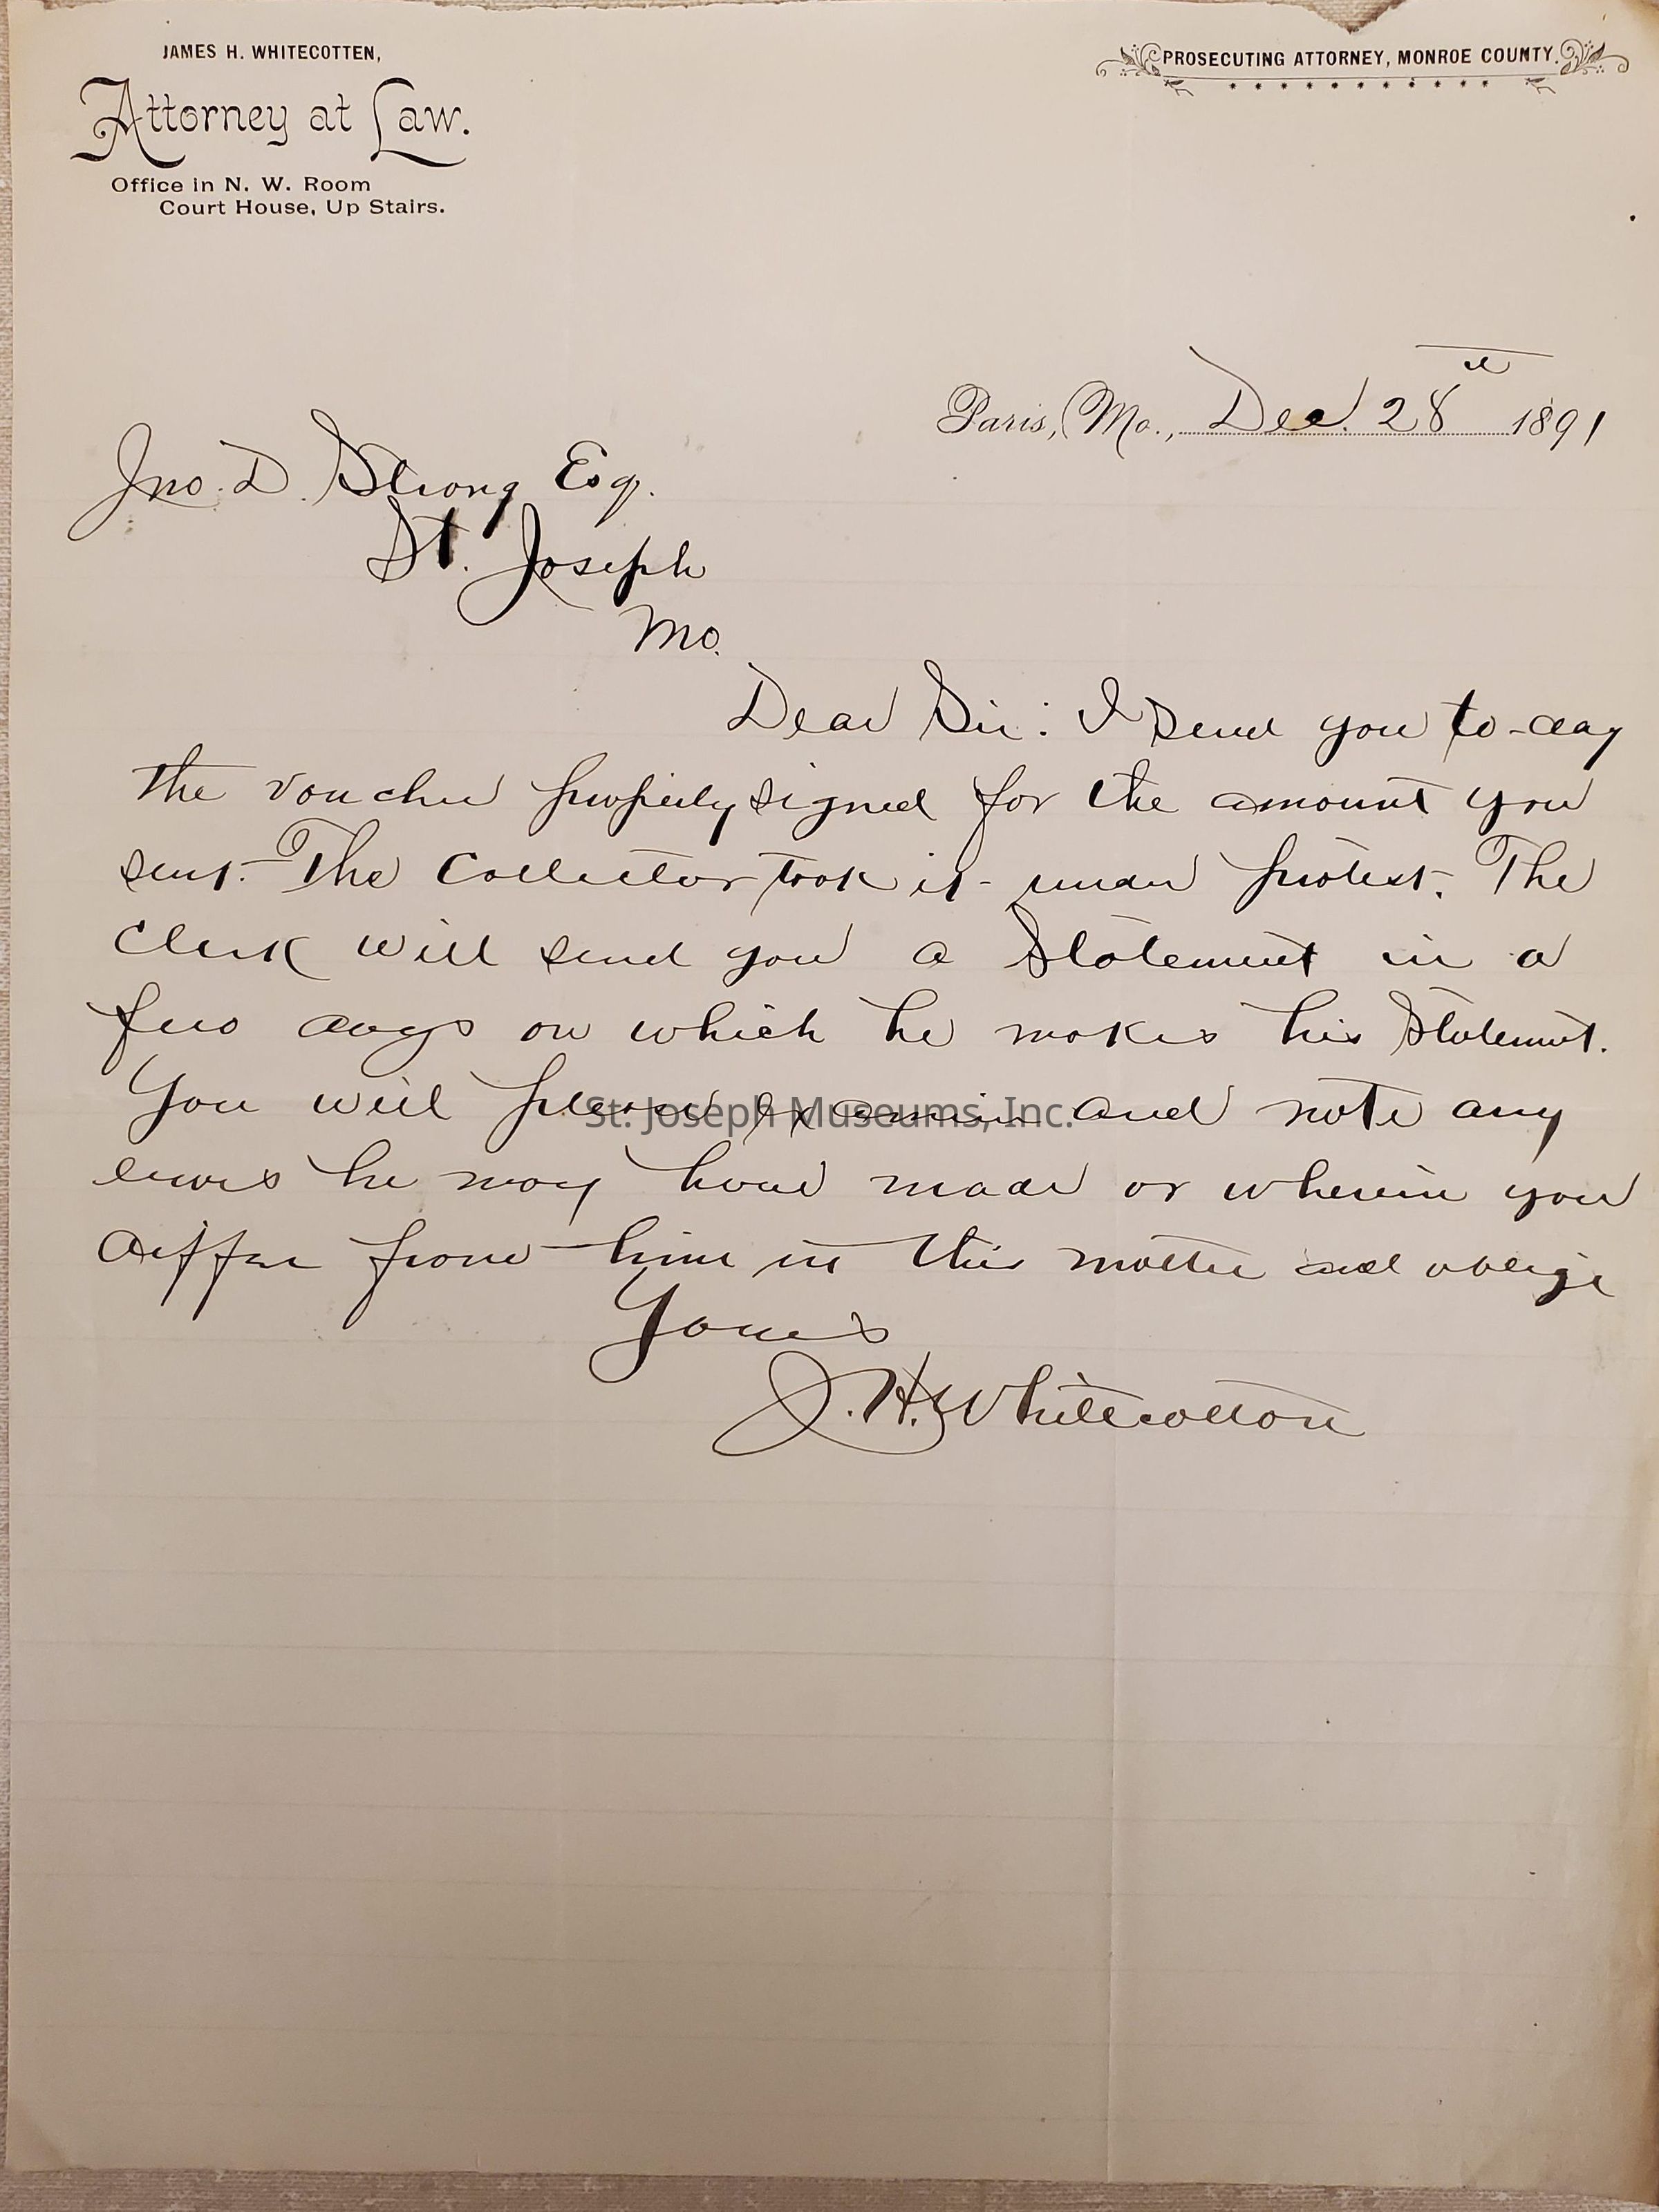 JAMES H. WHITECOTTEN,
Attorney at Law.
Office in N. W. Room
Court House, Up Stairs.
PROSECUTING ATTORNEY, MONROE COUNTY.
Paris, Mo., Dec. 28th 1891
Jno. D. Strong Esq.
St. Joseph
Mo.
Dear Sir: I send you to-day
the voucher properly signed for the amount you
sent. The Collector took it under protest. The
Clerk will send you a Statement in a
few days on which he makes his Statement.
You will please examine and note any
errors he may have made or wherein you
differ from him in this matter and oblige
Yours
J. H. Whitecotton
St. Joseph Museums, Inc.